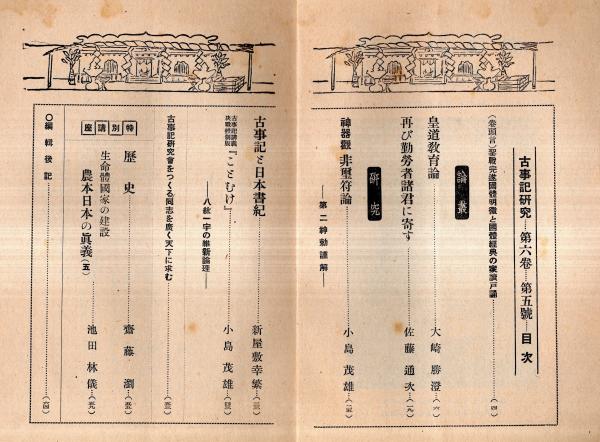 古事記研究 第六卷 第五號 目次
(卷頭言)聖戰完遂國體明徵と國體經典の家讀戸誦……(四)
論叢
皇道敎育論……大崎勝澄…(六)
再び勤勞者諸君に寄す……佐藤通次…(一九)
硏究
神器觀 非璽符論……小島茂雄…(二五)
―第二神勅謹解―
古事記と日本書紀……新屋敷幸繁…(三三)
古事記講義
決戰體制版
『ことむけ』……小島茂雄…
―八紘一宇の維新論理―
古事記硏究會をつくる同志を廣く天下に求む……
特別講座
歷史……齋藤瀏…
生命體國家の建設
農本日本の眞義(五)……池田林儀…
〇編輯後記……